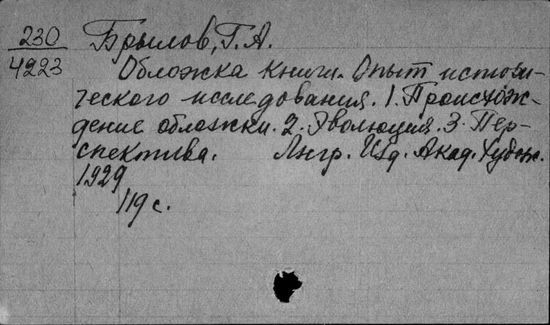 230 Брылов, Г. А.
4223 Обложка книги. Опыт истори-
ческого исследования. 1. Происхож-
дение обложки. 2. Эволюция. 3. Пер-
спектива. Лнгр. Изд. Акад. Худож.
1929
119 с.